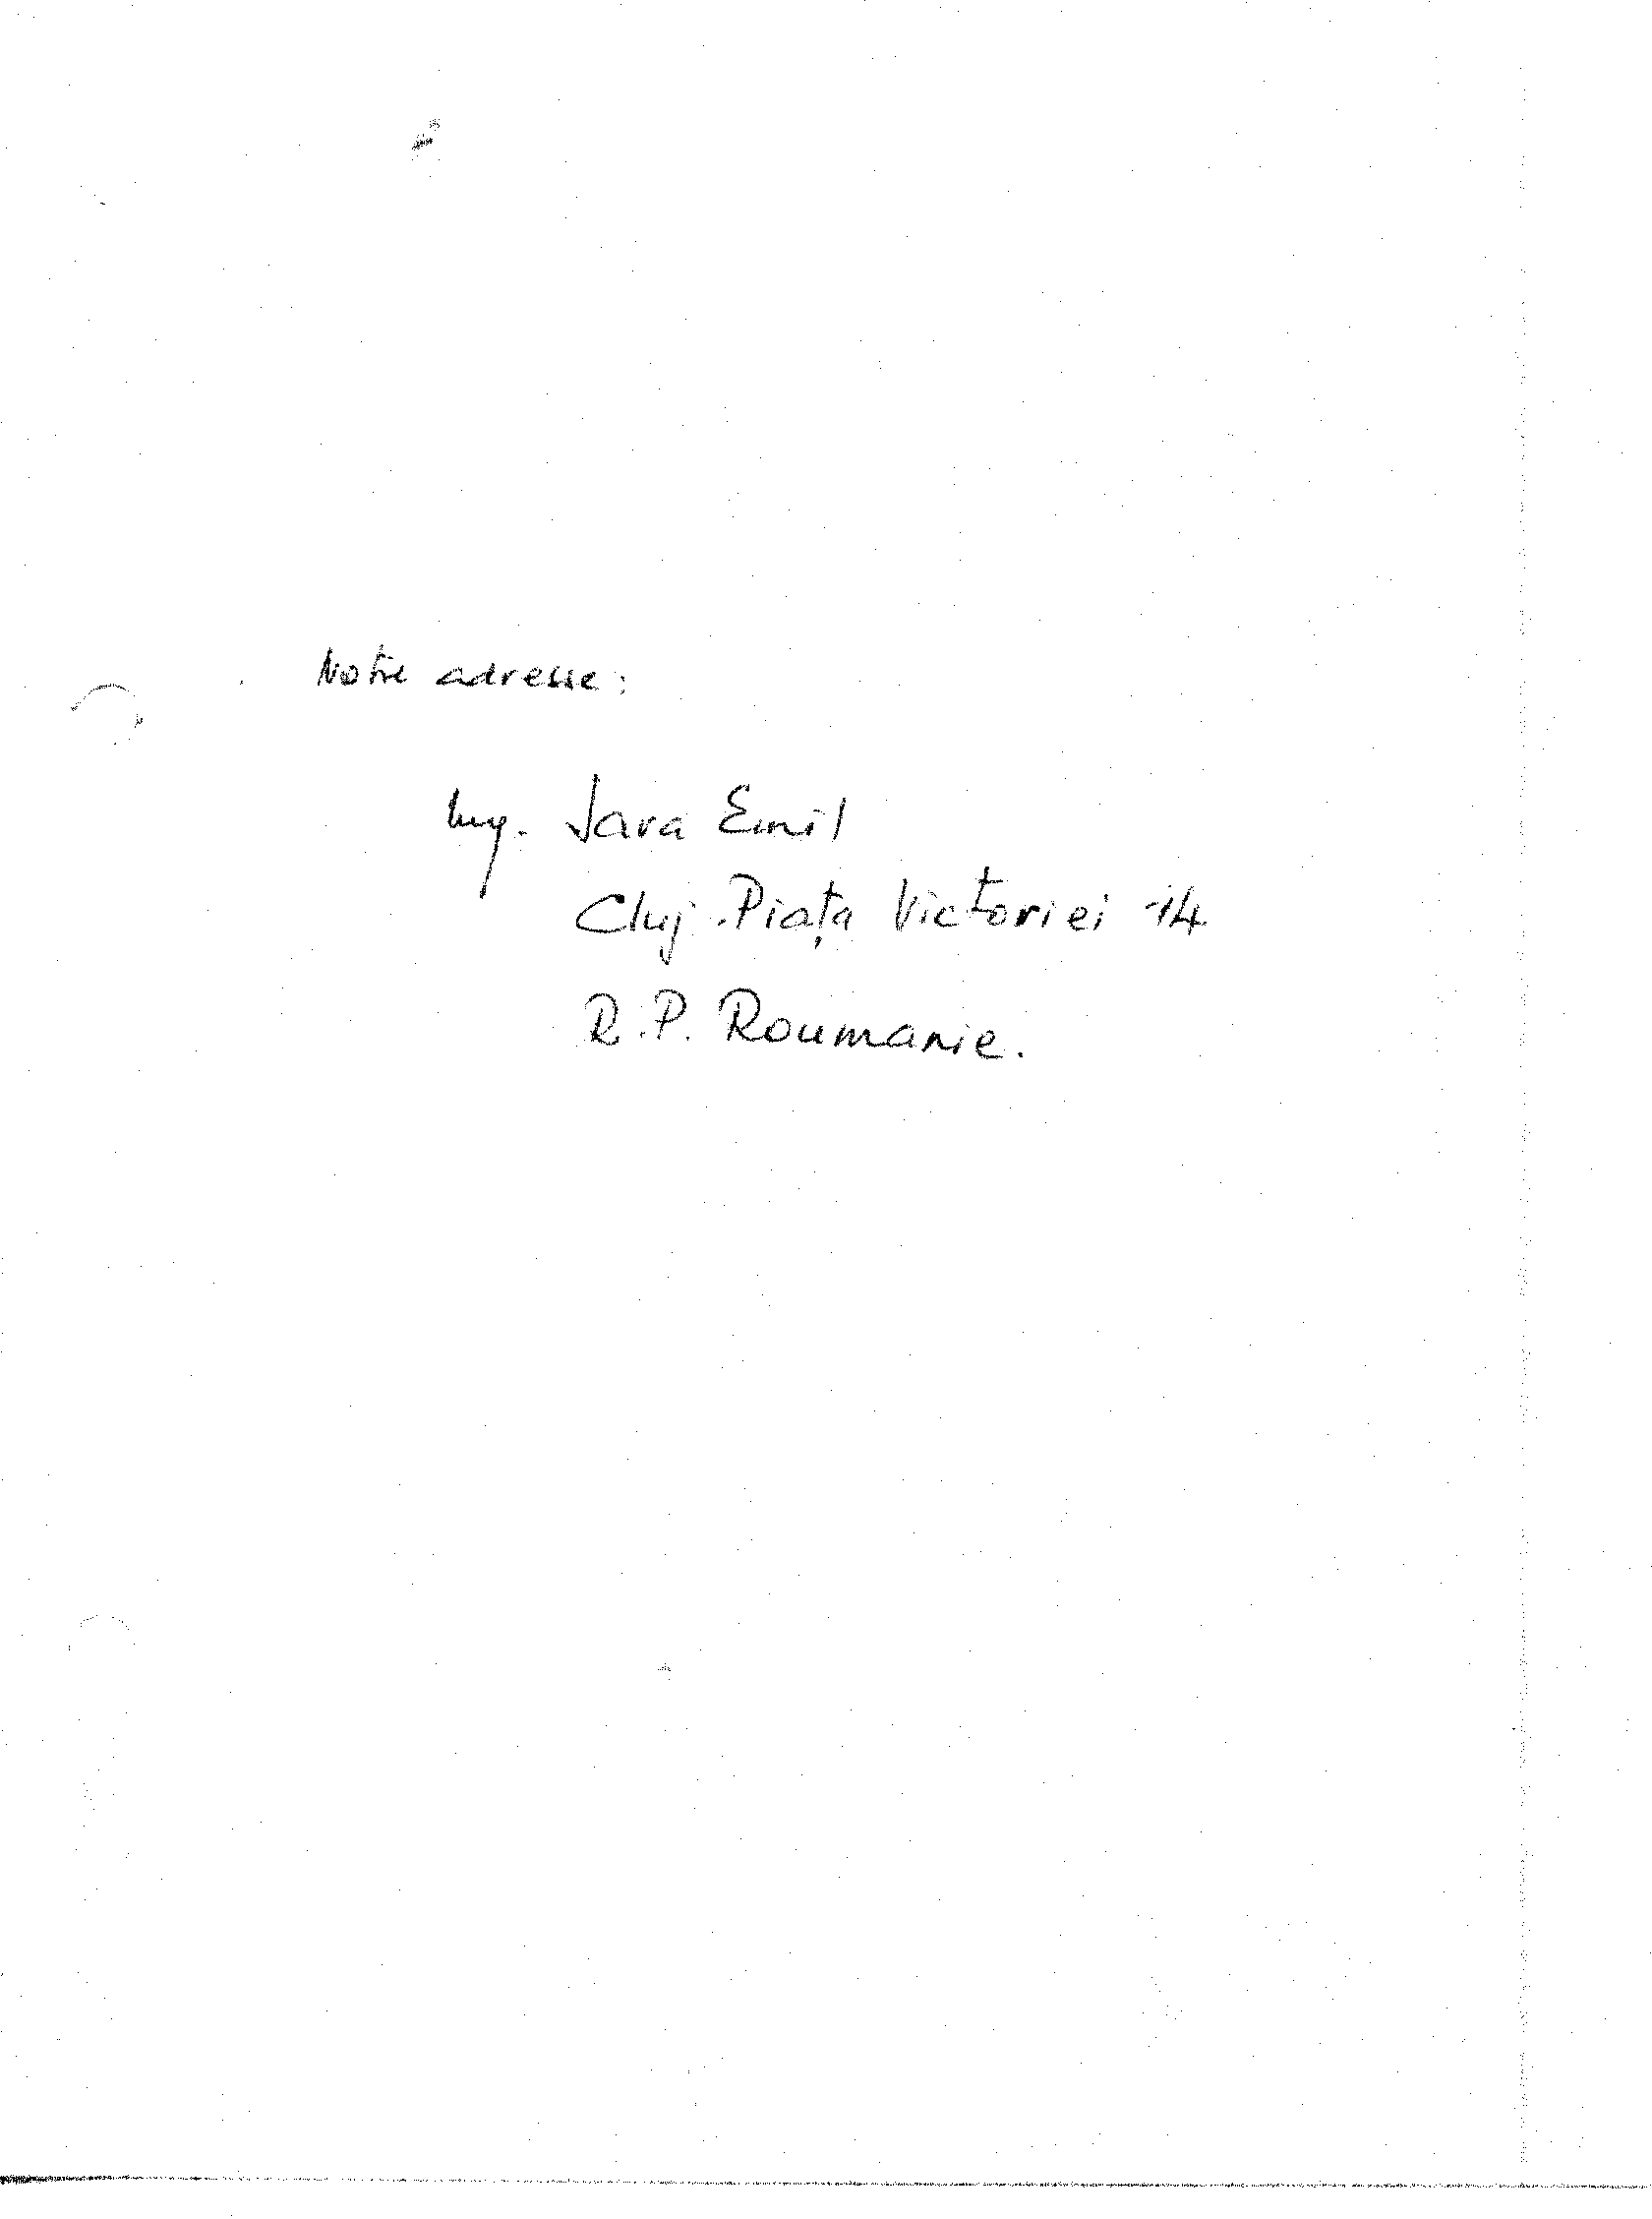 Notre adresse:
Ing. Java Emil
Cluj. Piața Victoriei 14
R.P. Roumanie.